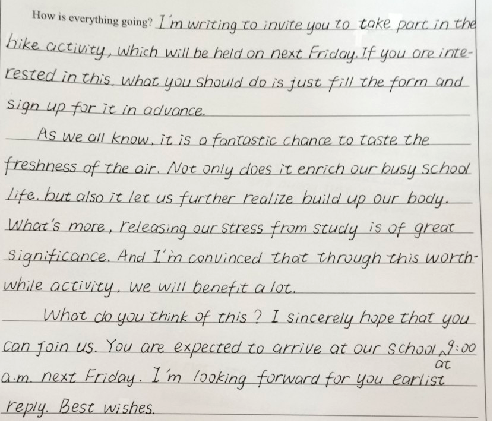 How is everything going? I'm writing to invite you to take part in the
hike activity, which will be held on next Friday. If you are inte-
rested in this, what you should do is just fill the form and
sign up for it in advance.
As we all know, it is a fantastic chance to taste the
freshness of the air. Not only does it enrich our busy school
life, but also it let us further realize build up our body.
What's more, releasing our stress from study is of great
significance. And I'm convinced that through this worth-
while activity, we will benefit a lot.
What do you think of this? I sincerely hope that you
can join us. You are expected to arrive at our school at 9:00
a.m. next Friday. I'm looking forward for you earlist
reply. Best wishes.